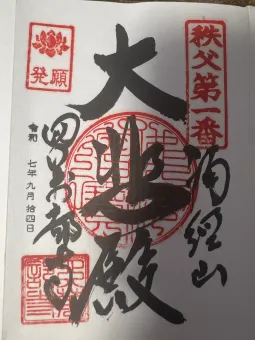 秩父第一番
誦經山
大悲殿
発願
四萬部寺
令和 七年九月拾四日